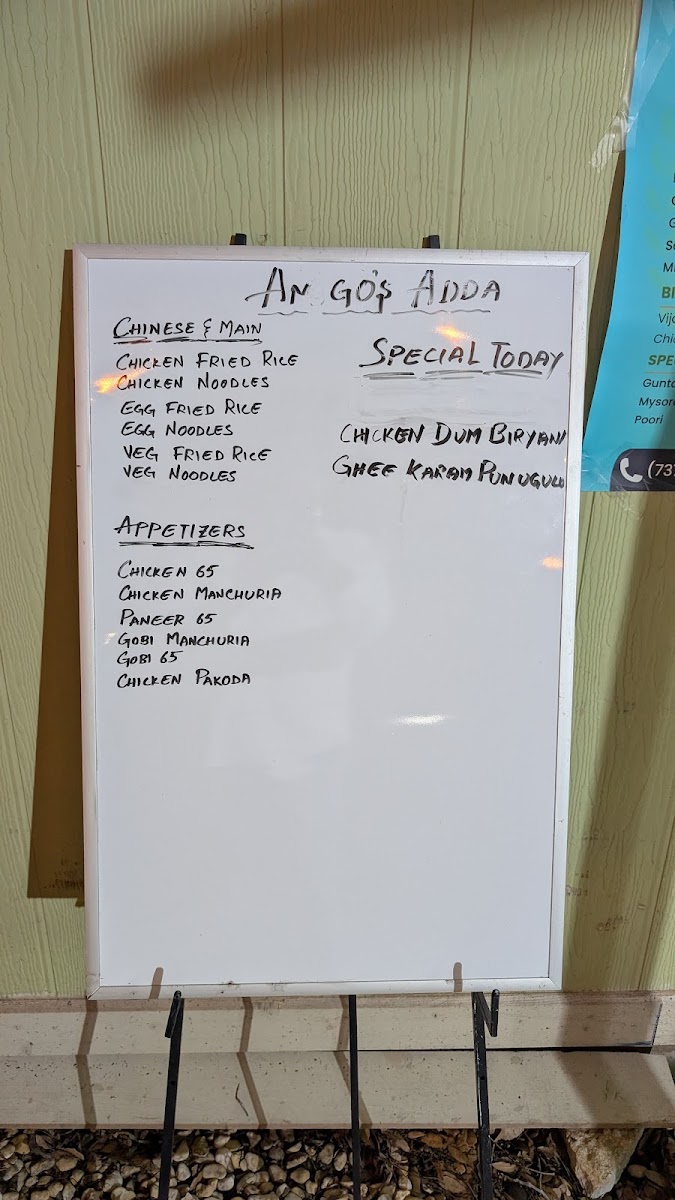 AN GO'S ADDA
CHINESE & MAIN
CHICKEN FRIED RICE
CHICKEN NOODLES
EGG FRIED RICE
EGG NOODLES
VEG FRIED RICE
VEG NOODLES
APPETIZERS
CHICKEN 65
CHICKEN MANCHURIA
PANEER 65
GOBI MANCHURIA
GOBI 65
CHICKEN PAKODA
SPECIAL TODAY
CHICKEN DUM BIRYANI
GHEE KARAM PUNUGULU
BI
Vij
Chi
SPE
Gunt
Mysor
Poori
(737